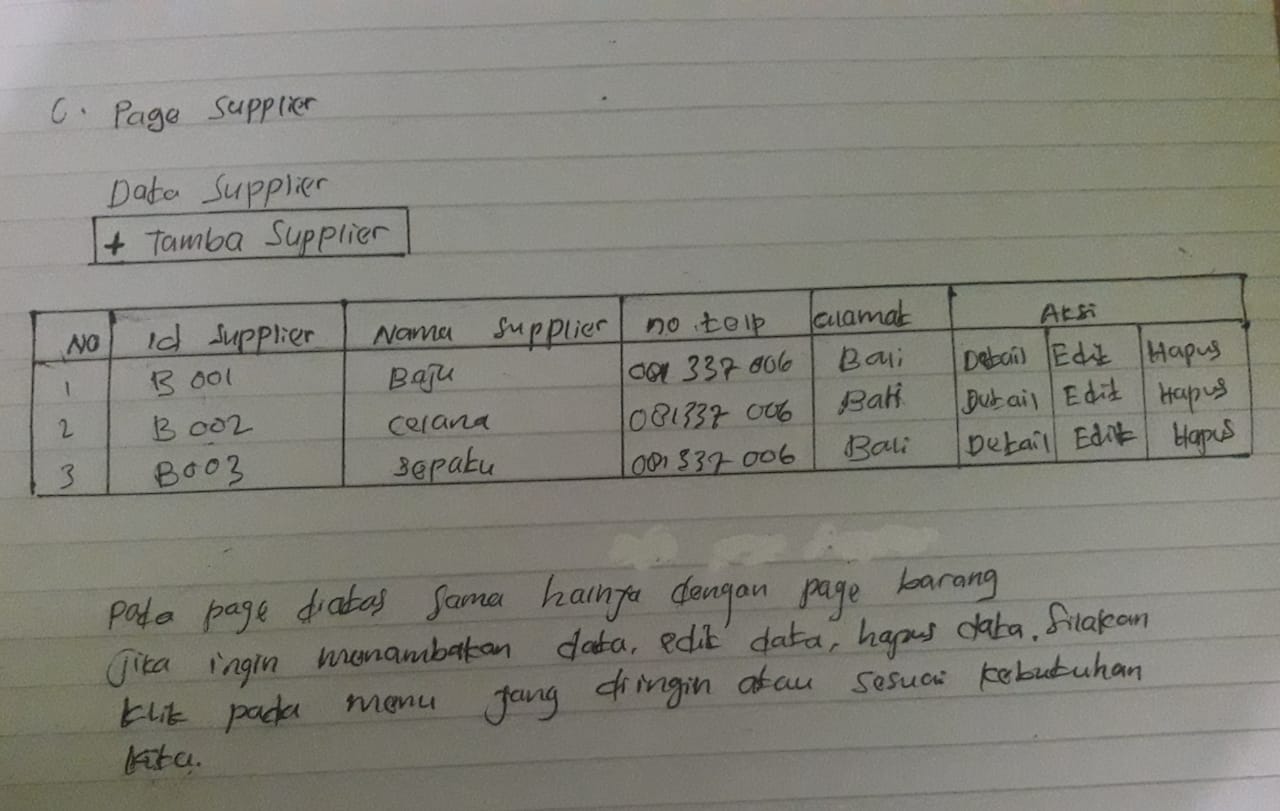 C. Page Supplier
Data Supplier
+ Tamba Supplier
NO Id Supplier Nama Supplier no telp alamat Aksi
1 B 001 Baju 081 337 006 Bali Detail Edit Hapus
2 B 002 celana 081337 006 Bali Detail Edit Hapus
3 B003 sepatu 081 337 006 Bali Detail Edit Hapus
Pada page diatas sama halnya dengan page barang
jika ingin menambakan data, edit data, hapus data. Silakan
klik pada menu yang diingin atau sesuai kebutuhan
kita.